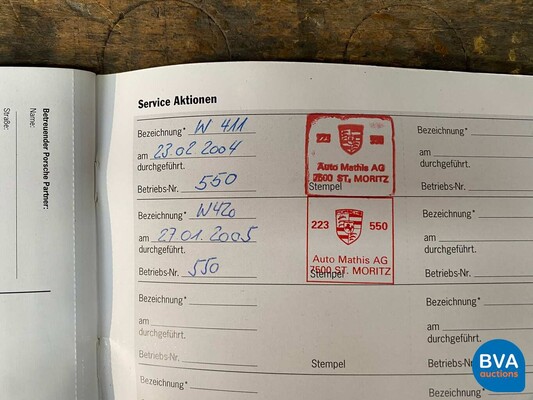 Betreuender Porsche Partner:
Name:
Straße:
Service Aktionen
Bezeichnung* W 411
am 23.02 2004
durchgeführt.
Betriebs-Nr. 550
Auto Mathis AG
7500 ST. MORITZ
Stempel
Bezeichnung*
am
durchgeführt.
Betriebs-Nr.
Bezeichnung* W420
am 27.01.2005
durchgeführt.
Betriebs-Nr. 550
223 550
Auto Mathis AG
7500 ST. MORITZ
Stempel
Bezeichnung*
am
durchgeführt.
Betriebs-Nr.
Bezeichnung*
am
durchgeführt.
Betriebs-Nr.
Stempel
Bezeichnung*
am
durchgeführt.
Betriebs-Nr.
Bezeichnung*
Bezeichnung*
BVA
auctions